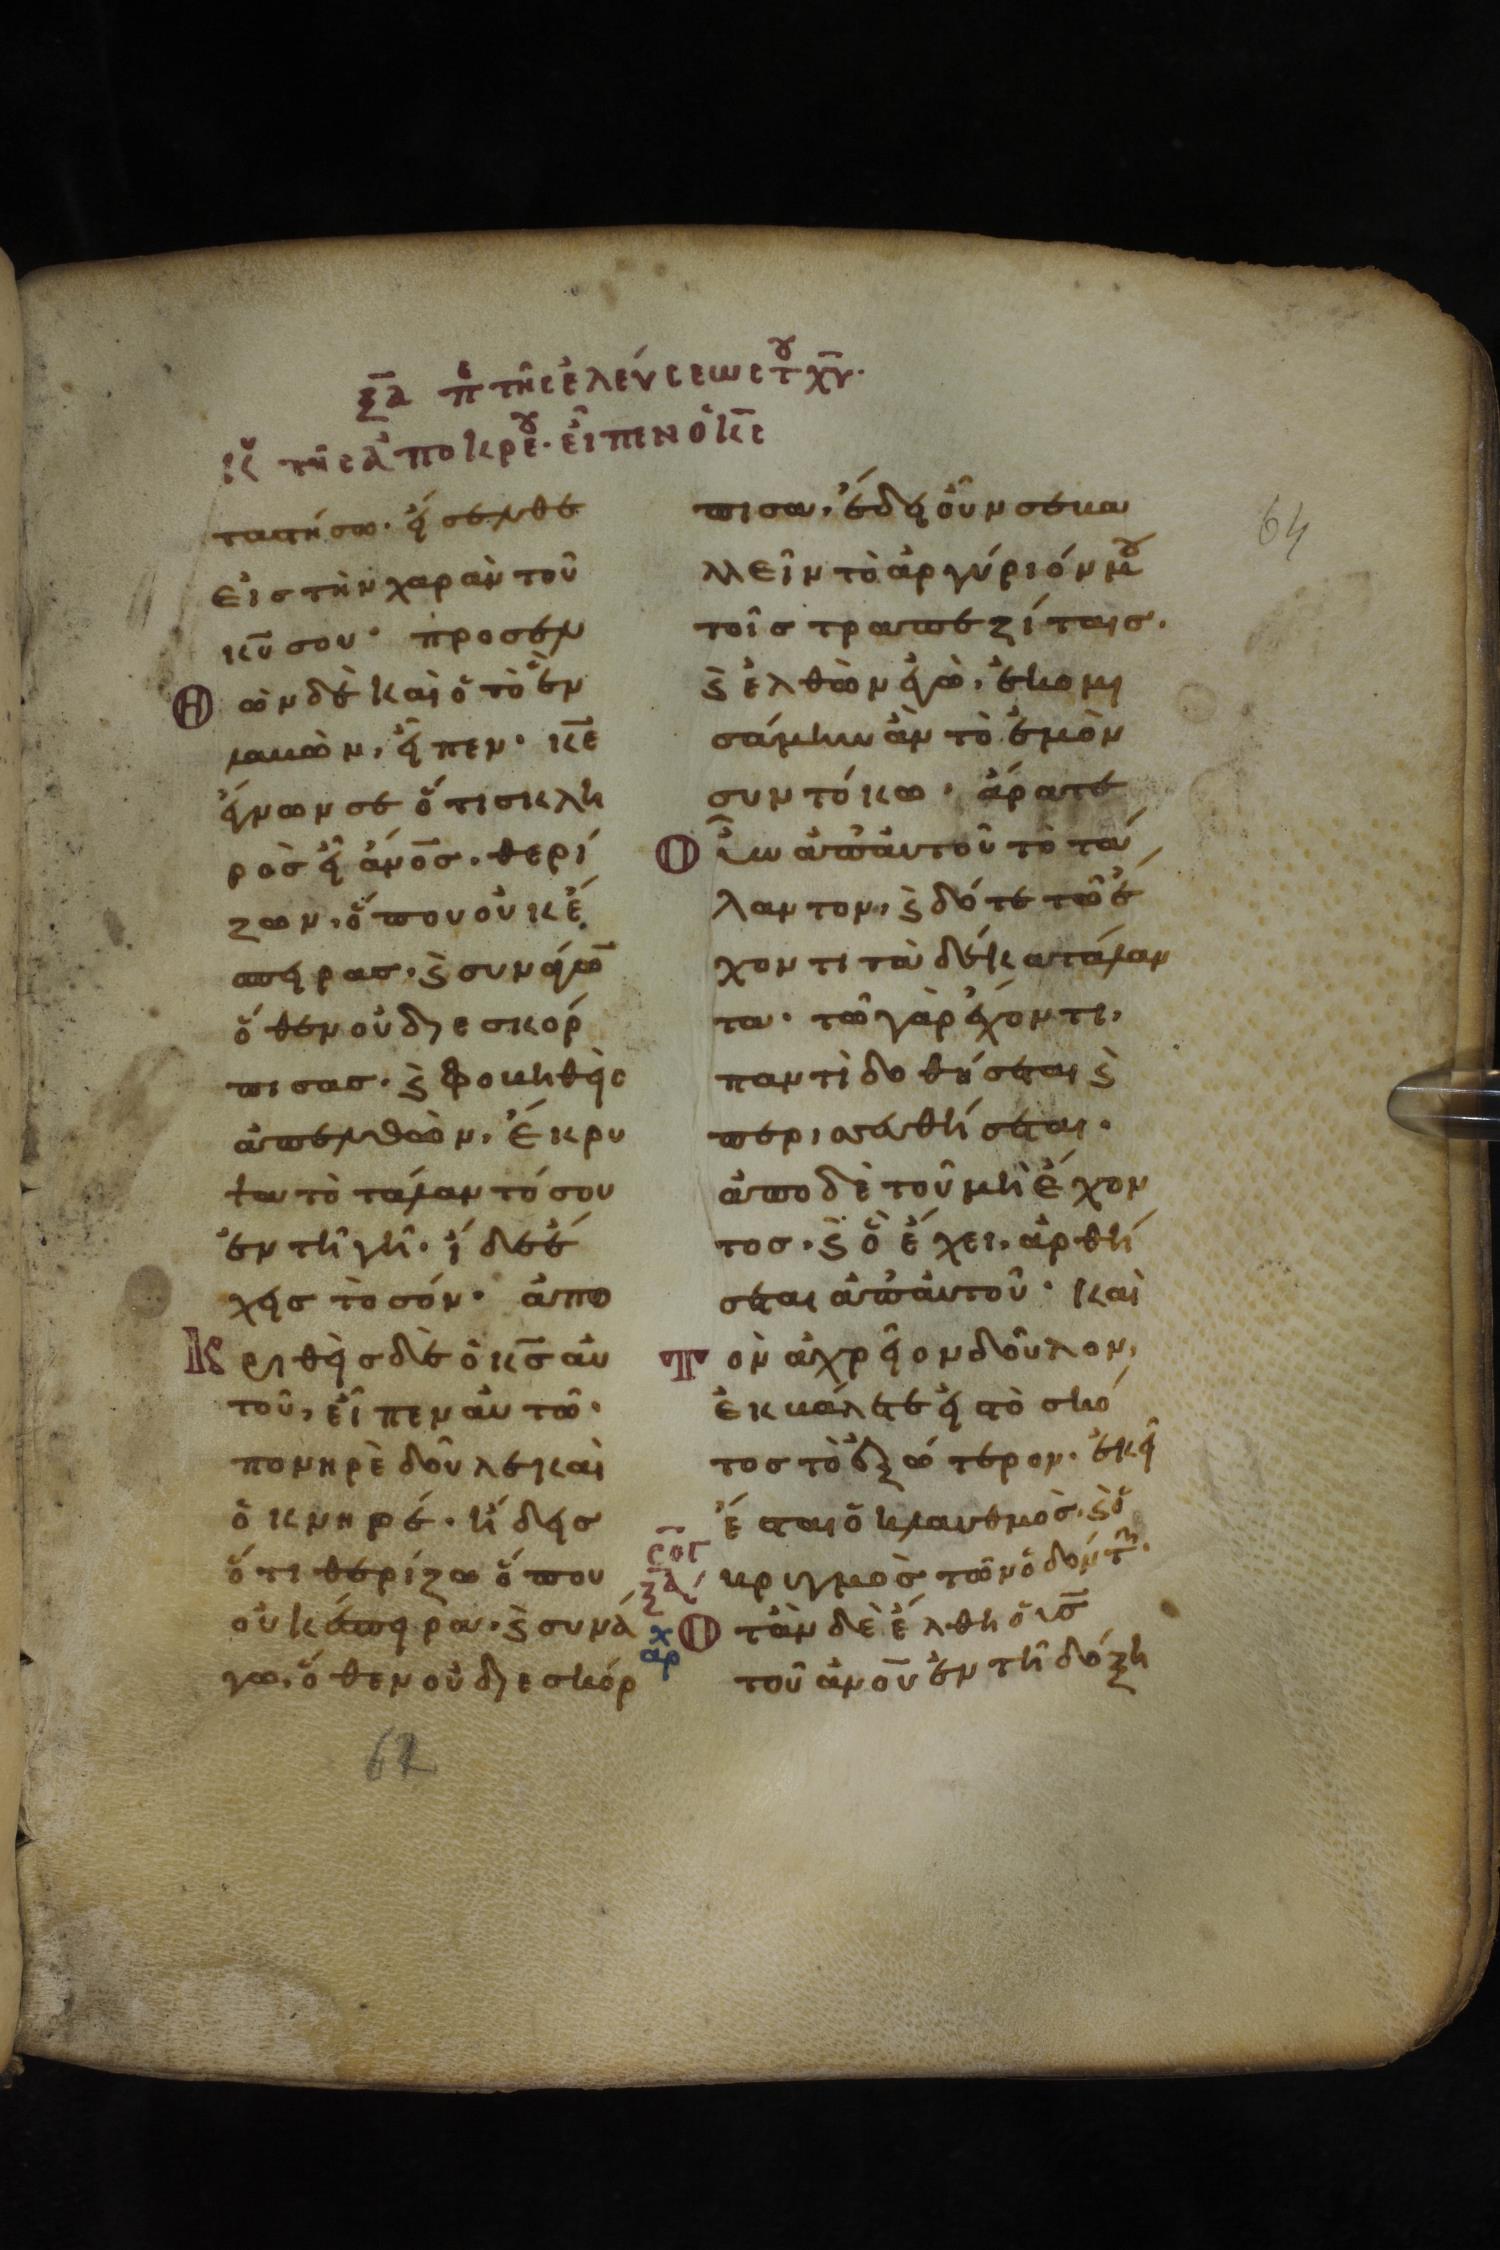 ξ̅α̅ π̇ τῆς ἐλεύσεως τοῦ χ̅υ̅·
κ̅υ̅ τῆς ἀποκρέου· εἶπεν ὁ κ̅ς̅
ταστήσω· εἴσελθε
εἰς τὴν χαρὰν τοῦ
κ̅υ̅ σου· προσελ
Θὼν δὲ καὶ ὁ τὸ ἓν
λαβὼν, εἶπεν· κ̅ε̅
ἔγνων σε ὅτι σκλη
ρὸς εἶ ἄν̅ο̅ς̅· θερί
ζων, ὅπου οὐκ ἔ
σπειρας· ϗ συνάγω̅
ὅθεν οὐ διεσκόρ
πισας· ϗ φοβηθεὶς
ἀπελθὼν, ἔκρυ
ψα τὸ τάλαντόν σου
ἐν τῆ γῆ· ἴδε ἔ
χεις τὸ σόν· ἀπο
Κριθεὶς δὲ ὁ κ̅ς̅ αὐ
τοῦ, εἶπεν αὐτῶ·
πονηρὲ δοῦλε καὶ
ὀκνηρέ· ἤδεις
ὅτι θερίζω ὅπου
οὐκ ἔσπειρα· ϗ συνά
γω, ὅθεν οὐ διεσκόρ
62
64
πισα, ἔδει οὖν σε βα
λεῖν τὸ ἀργύριόν μου
τοῖς τραπεζίταις·
ϗ ἐλθὼν ἐγὼ, ἐκομι
σάμην ἂν τὸ ἐμὸν
σὺν τόκω· ἄρατε
Οὖν ἀπ᾽ αὐτοῦ τὸ τά
λαντον, ϗ δότε τῶ ἔ
χοντι τὰ δέκα τάλαν
τα· τῶ γὰρ ἔχοντι,
παντὶ δοθήσεται ϗ
περισσευθήσεται·
ἀπο δὲ τοῦ μὴ ἔχον
τος· ϗ ὃ ἔχει, ἀρθή
σεται ἀπ᾽ αὐτοῦ· καὶ
Τὸν ἀχρεῖον δοῦλον,
ἐκβάλετε εἰς τὸ σκό
τος τὸ ἐξώτερον· ἐκεῖ
ἔσται ὁ κλαυθμὸς· ϗ ὁ
βρυγμὸς τῶν ὀδόντων·
σ̅ο̅γ̅
ξ̅α̅
χ
αρ
Ὅταν δὲ ἔλθη ὁ υ̅ς̅
τοῦ ἀν̅ο̅υ̅ ἐν τῆ δόξη